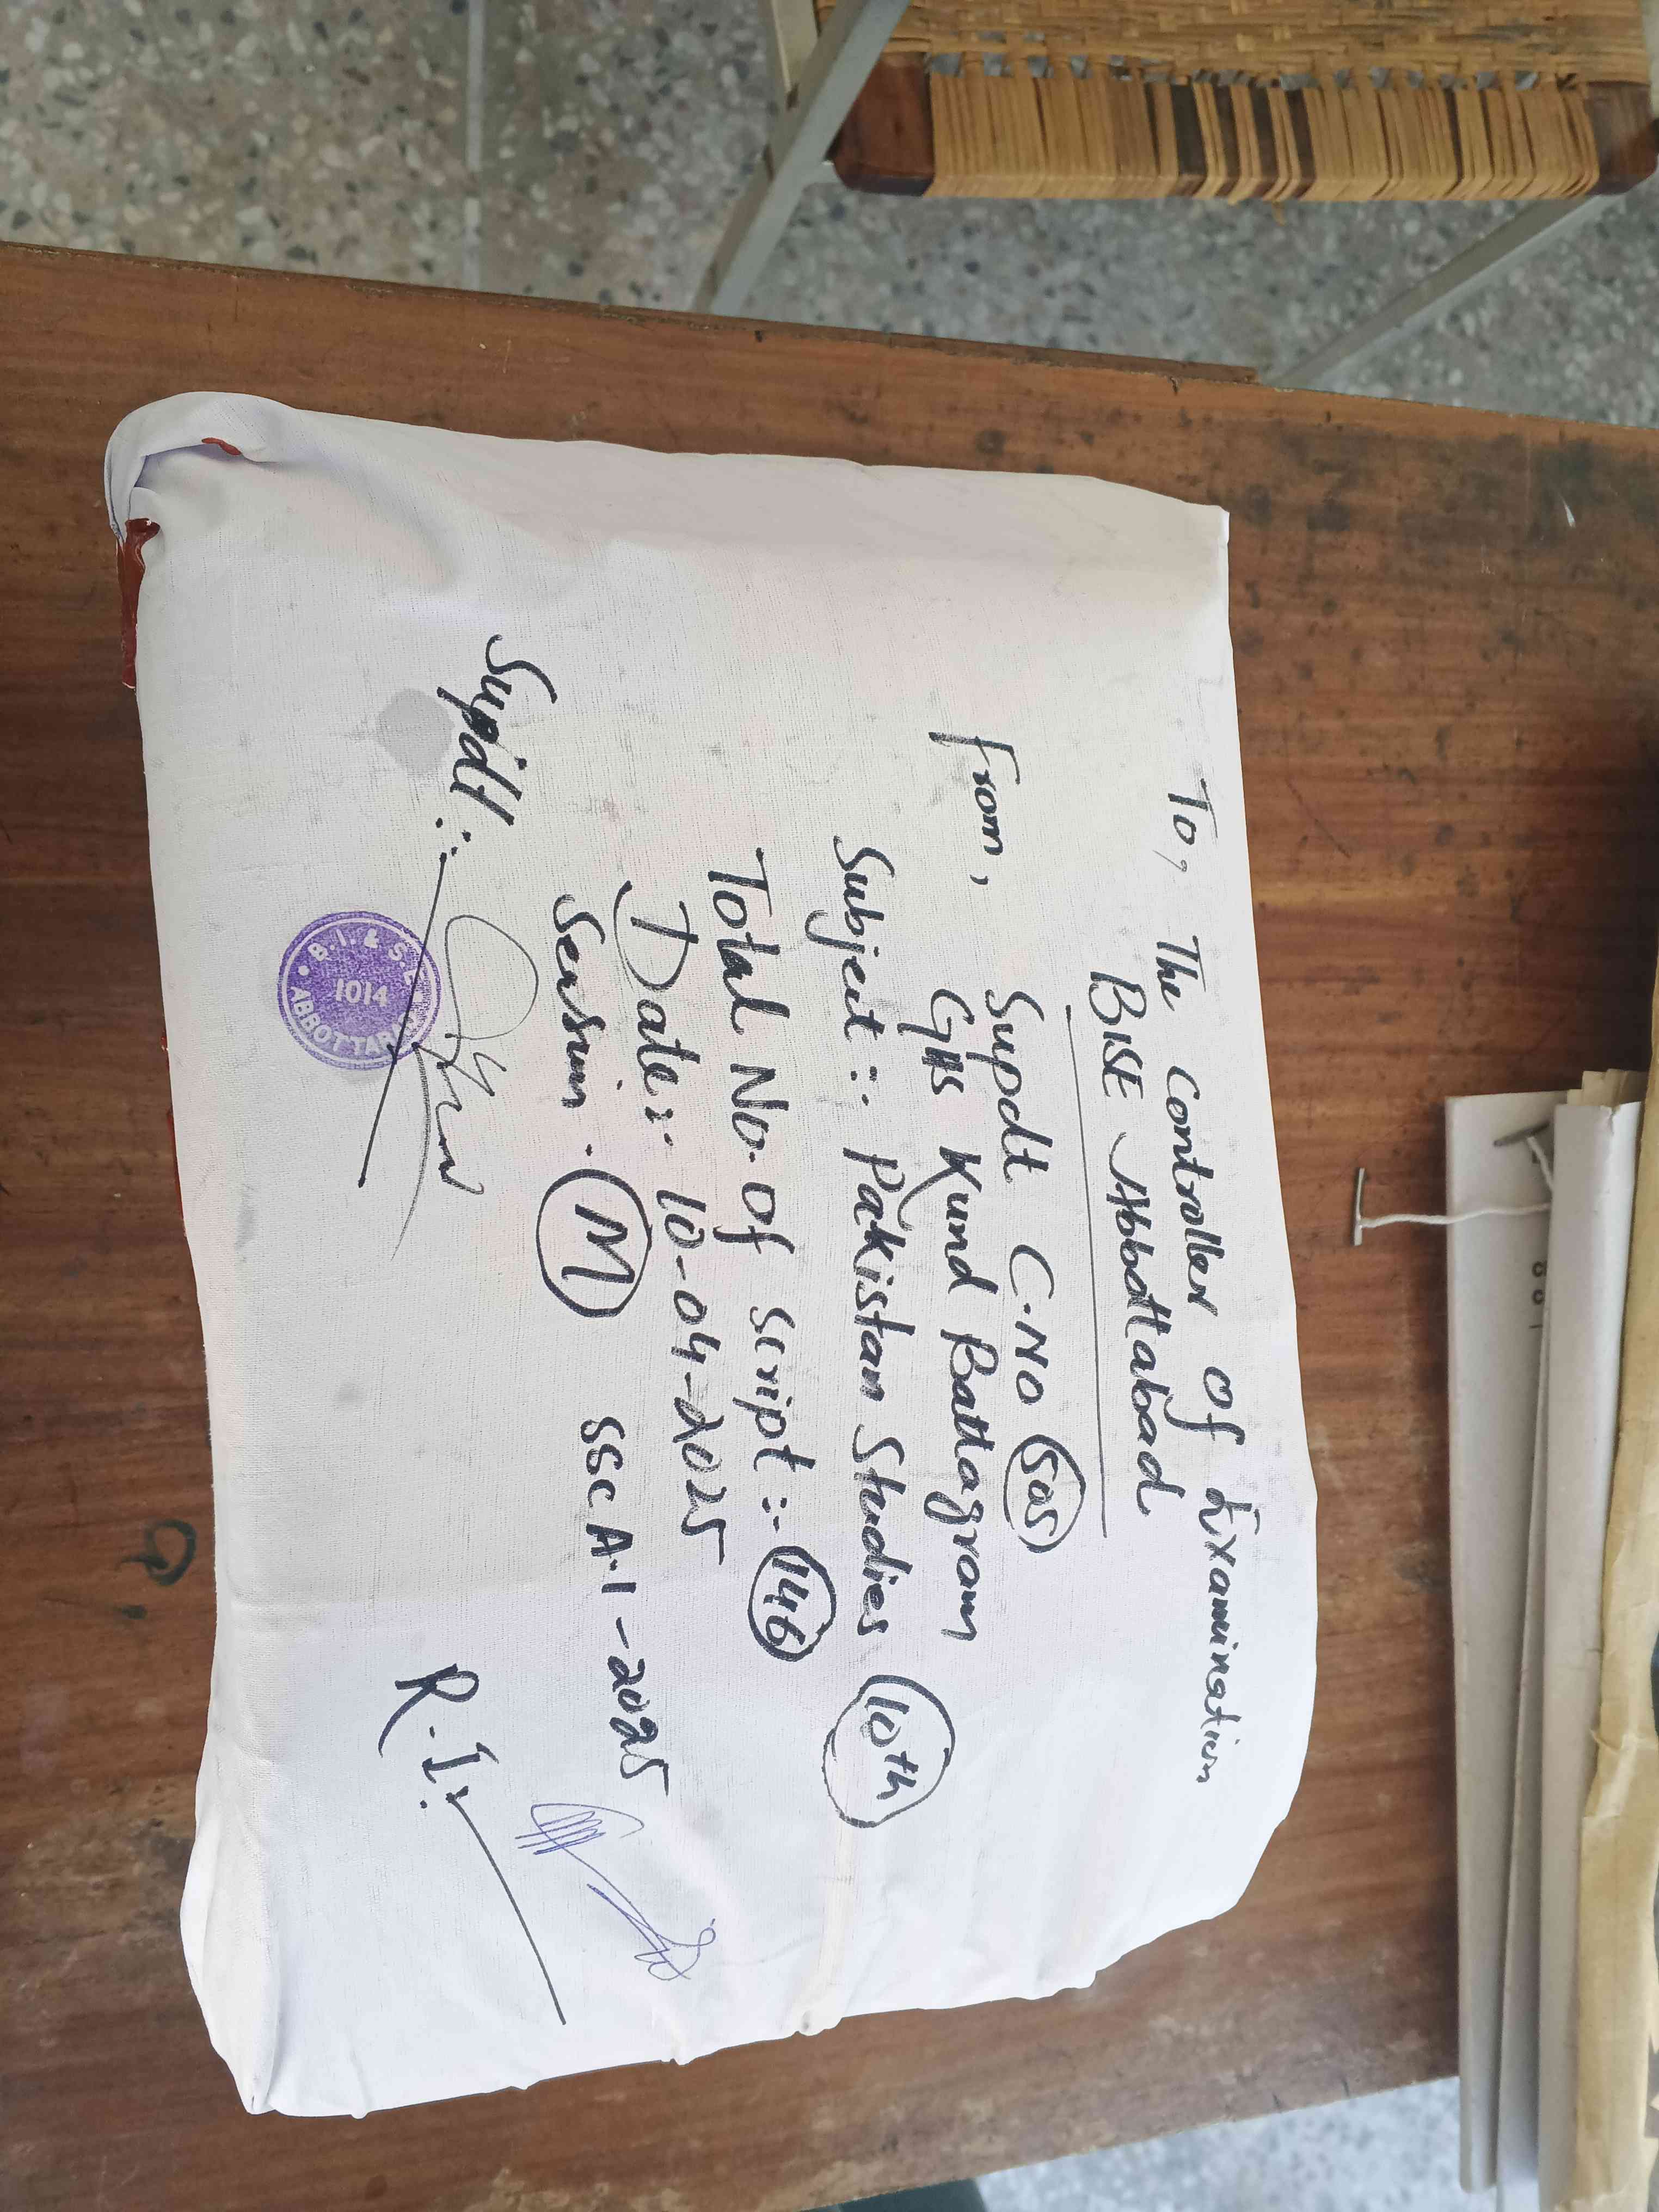 To, The Controller Of Examination
BISE Abbottabad
From,
Supdt C.No 505
GHS Kund Battagram
Subject :- Pakistan Studies 10th
Total No. Of Script :- 146
Date:- 10-04-2025
Session. M SSC A-I-2025
Supdt :-
R.I.
B.I & S.E
1014
ABBOTTABAD